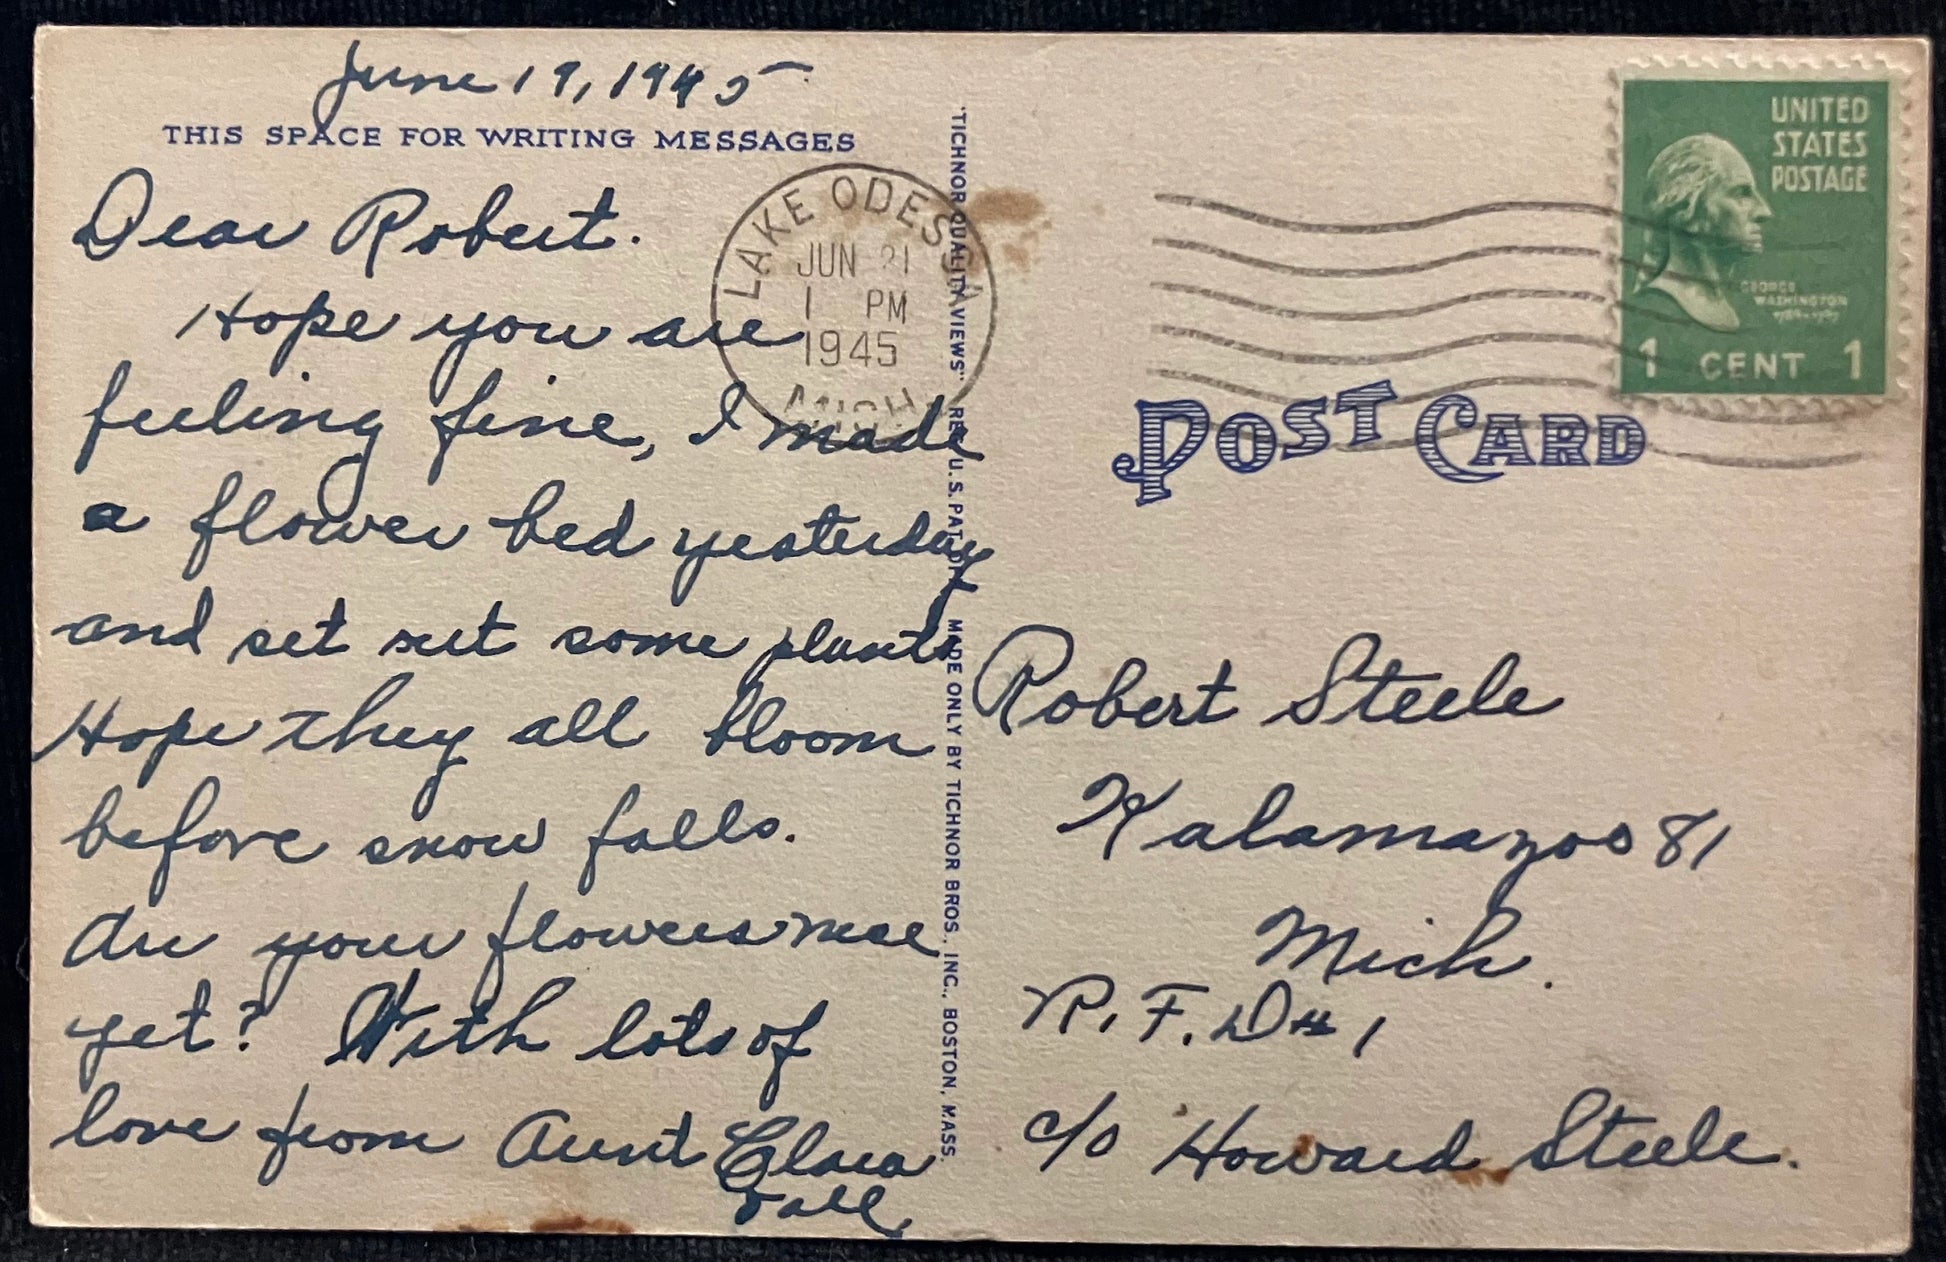 June 19, 1945
THIS SPACE FOR WRITING MESSAGES
Dear Robert.
Hope you are
feeling fine, I made
a flower bed yesterday
and set out some plants
Hope they all bloom
before snow falls.
Are your flowers nice
yet? With lots of
love from Aunt Clara
LAKE ODESSA
JUN 21
1 PM
1945
MICH.
"TICHNOR QUALITY VIEWS" REG. U.S. PAT. OFF. MADE ONLY BY TICHNOR BROS., INC., BOSTON, MASS.
UNITED
STATES
POSTAGE
GEORGE
WASHINGTON
1 CENT 1
POST CARD
Robert Steele
Kalamazoo 81
Mich.
R.F.D # 1
c/o Howard Steele.